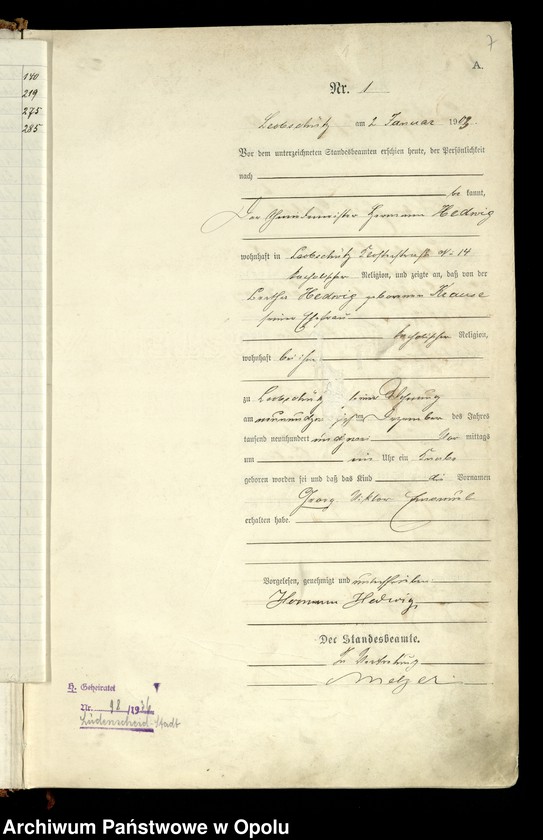 140
219
275
285
7
A.
Nr. 1
Leobschütz am 2 Januar 1903.
Vor dem unterzeichneten Standesbeamten erschien heute, der Persönlichkeit
nach
be kannt,
Der Hermann Hedwig
wohnhaft in Leobschütz No 14
katholischer Religion, und zeigte an, daß von der
Hedwig geborenen Krause
seiner Ehefrau
katholischer Religion,
wohnhaft bei ihm
zu Leobschütz in seiner Wohnung
am Dezember des Jahres
tausend neunhundert und zwei Vor mittags
um ein Uhr ein Knabe
geboren worden sei und daß das Kind die Vornamen
Georg Viktor Emanuel
erhalten habe.
Vorgelesen, genehmigt und unterschrieben.
Hermann Hedwig
Der Standesbeamte.
In Vertretung
Melzer
H. Geheiratet
Nr. 98/1936
Lüdenscheid-Stadt
Archiwum Państwowe w Opolu